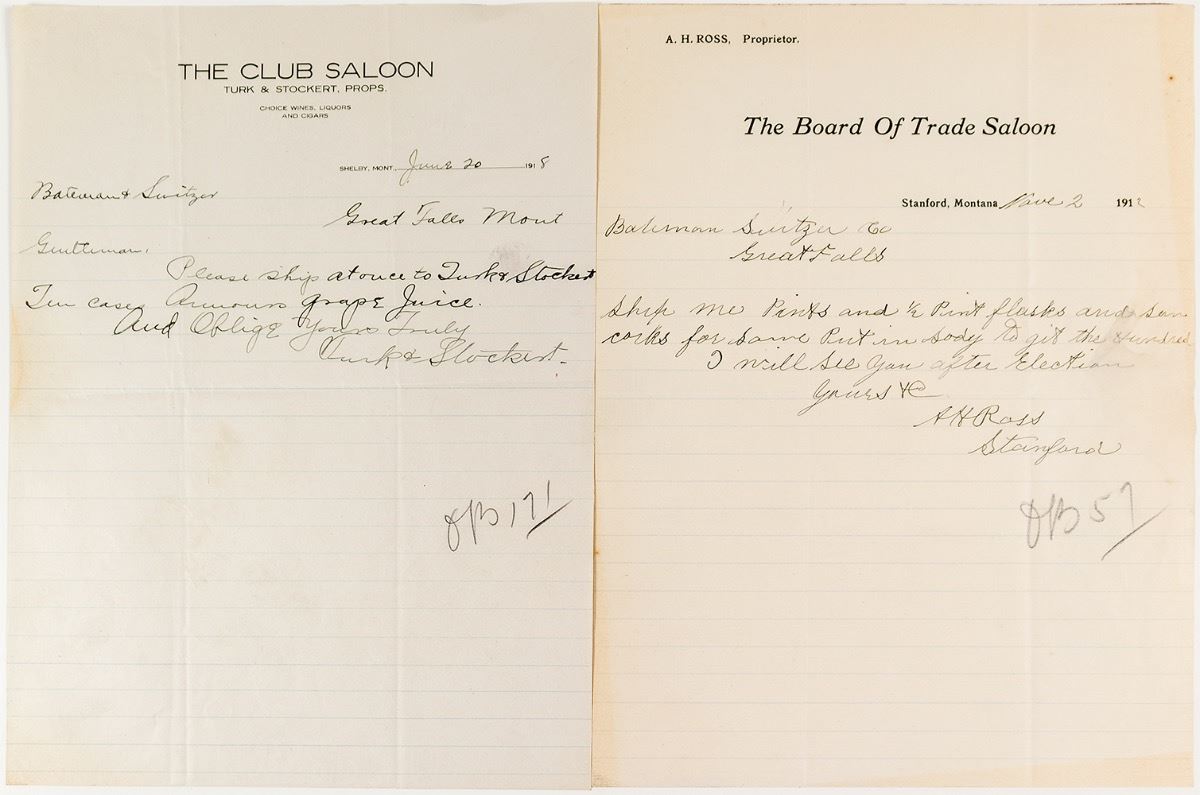 THE CLUB SALOON
TURK & STOCKERT, PROPS.
CHOICE WINES, LIQUORS
AND CIGARS
SHELBY, MONT., June 20 1918
Bateman & Switzer
Great Falls Mont
Gentleman.
Please ship at once to Turk & Stockert
Ten cases Armours grape Juice.
And Oblige Yours Truly
Turk & Stockert.
171
A. H. ROSS, Proprietor.
The Board Of Trade Saloon
Stanford, Montana, Nove 2 191
Bateman Switzer Co
Great Falls
Ship me Pints and ½ Pint flasks and
corks for same Put in to git the Hundred
I will See You after Election
Yours &C
A H Ross
Stanford
57